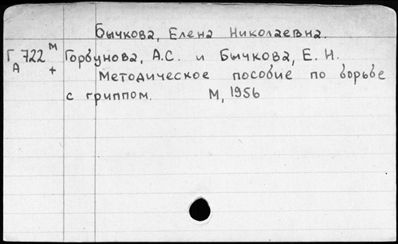 Бычкова, Елена Николаевна.
Г 722 М Горбунова, А.С. и Бычкова, Е. Н.
А + Методическое пособие по борьбе
с гриппом. М, 1956